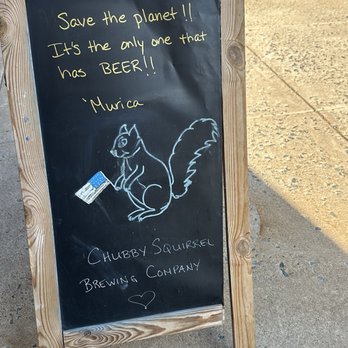 Save the planet!!
It's the only one that
has BEER!!
'Murica
CHUBBY SQUIRREL
BREWING COMPANY